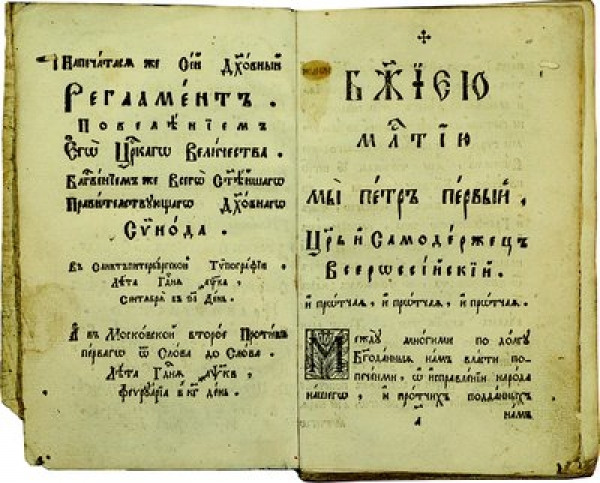 Напеча́тася же Се́й Дꙋхо́вный
Регламе́нтъ .
Повелѣ́нїемъ
Егѡ̀ Цр҃каго Вели́чества .
Бл҃гвенїемъ же Всегѡ̀ Ст҃ѣ́йшагѡ
Прави́телствꙋющагѡ Дꙋхо́внагѡ
Сѷно́да .
Въ Санктъпитербꙋ́ргской Тѷпогра́фїи ,
Лѣ́та Гдⷭ҇ня ҂аѱка ,
Сентабра̀ въ День .
А҆ въ Московской второе Противъ
пе́рвагѡ ѿ Слова до Слова .
Лѣ́та Гдⷭ҇ня ҂аѱкв ,
Феврꙋарїа в кг де́нь .
Бж҃їею
мл҃тїю
Мы̀ пе́тръ пе́рвый ,
Цр҃ь и҆ Самоде́ржецъ
Всерѡссі́йскїй .
и҆ про́тчая , и҆ про́тчая , и҆ про́тчая .
Ме́ждꙋ мно́гими по до́лгꙋ
Бг҃ода́нныя на́мъ вла́сти по-
пече́ньми , ѡ҆ и҆справле́нїи наро́да
на́шегѡ , и҆ про́тчихъ по́дданныхъ
на́мъ
а҃